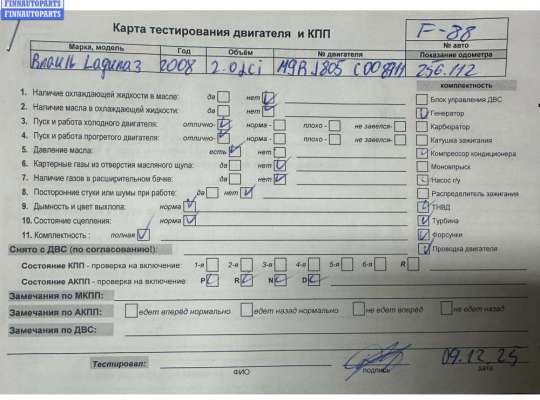 FINNAUTOPARTS
FINNAUTOPARTS
Карта тестирования двигателя и КПП
F-88
№ авто
Марка, модель Год Объём № двигателя Показание одометра
Renault Laguna 3 2008 2.0 dCi 256.112
комплектность
1. Наличие охлаждающей жидкости в масле: да нет
2. Наличие масла в охлаждающей жидкости: да нет
3. Пуск и работа холодного двигателя: отлично- норма - плохо - не завелся-
4. Пуск и работа прогретого двигателя: отлично- норма - плохо - не завелся-
5. Давление масла: есть нет
6. Картерные газы из отверстия масляного щупа: да нет
7. Наличие газов в расширительном бачке: да нет
8. Посторонние стуки или шумы при работе: да нет
9. Дымность и цвет выхлопа: норма
10. Состояние сцепления: норма
11. Комплектность: полная
Блок управления ДВС
Генератор
Карбюратор
Катушка зажигания
Компрессор кондиционера
Моновпрыск
Насос г/у
Распределитель зажигания
ТНВД
Турбина
Форсунки
Проводка двигателя
Снято с ДВС (по согласованию!):
Состояние КПП - проверка на включение: 1-я 2-я 3-я 4-я 5-я 6-я R
Состояние АКПП - проверка на включение: P R N D
Замечания по МКПП:
Замечания по АКПП: едет вперёд нормально едет назад нормально не едет вперёд не едет назад
Замечания по ДВС:
Тестировал:
ФИО подпись дата
09.12.25